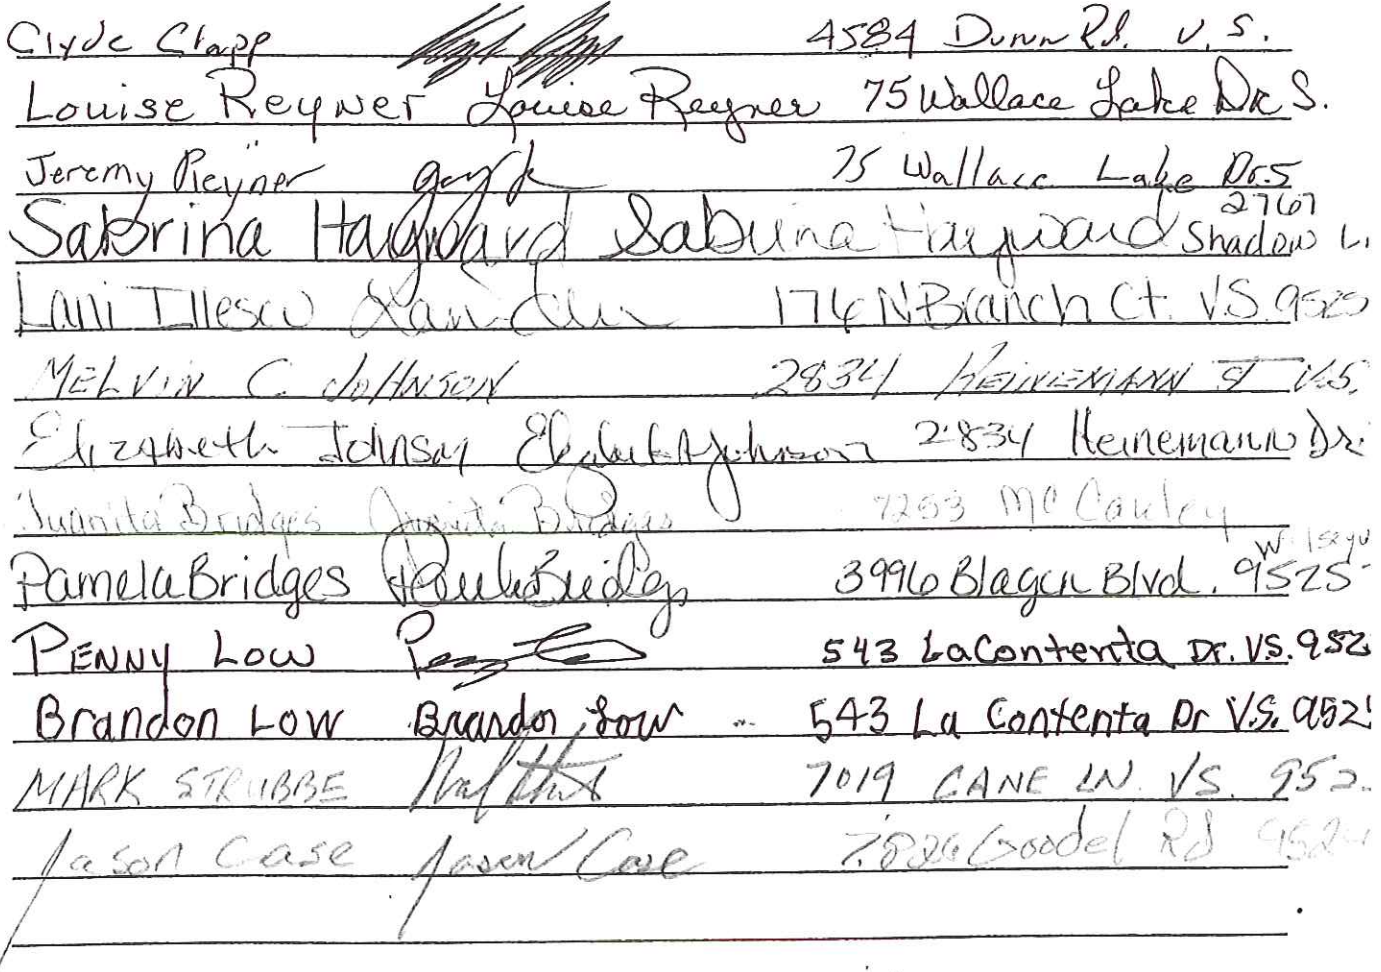 Clyde Clapp 4584 Dunn Rd. V.S.
Louise Reyner Louise Reyner 75 Wallace Lake Dr S.
Jeremy Reyner 75 Wallace Lake Dr. S
Sabrina Hayward Sabrina Hayward 2767 Shadow L.
Lani Illescu 176 N. Branch Ct. V.S. 9525
MELVIN C. JOHNSON 2834 HEINEMANN V.S.
Elizabeth Johnson Elizabeth A Johnson 2834 Heinemann Dr.
Juanita Bridges Juanita Bridges 7253 McCauley
Pamela Bridges Bridges 3996 Blagen Blvd. 9525
PENNY LOW 543 La Contenta Dr. V.S. 952
Brandon Low Brandon Low 543 La Contenta Dr V.S. 952
MARK STRUBBE 7019 CANE LN. VS. 952
Jason Case Jason Case Goodel Rd